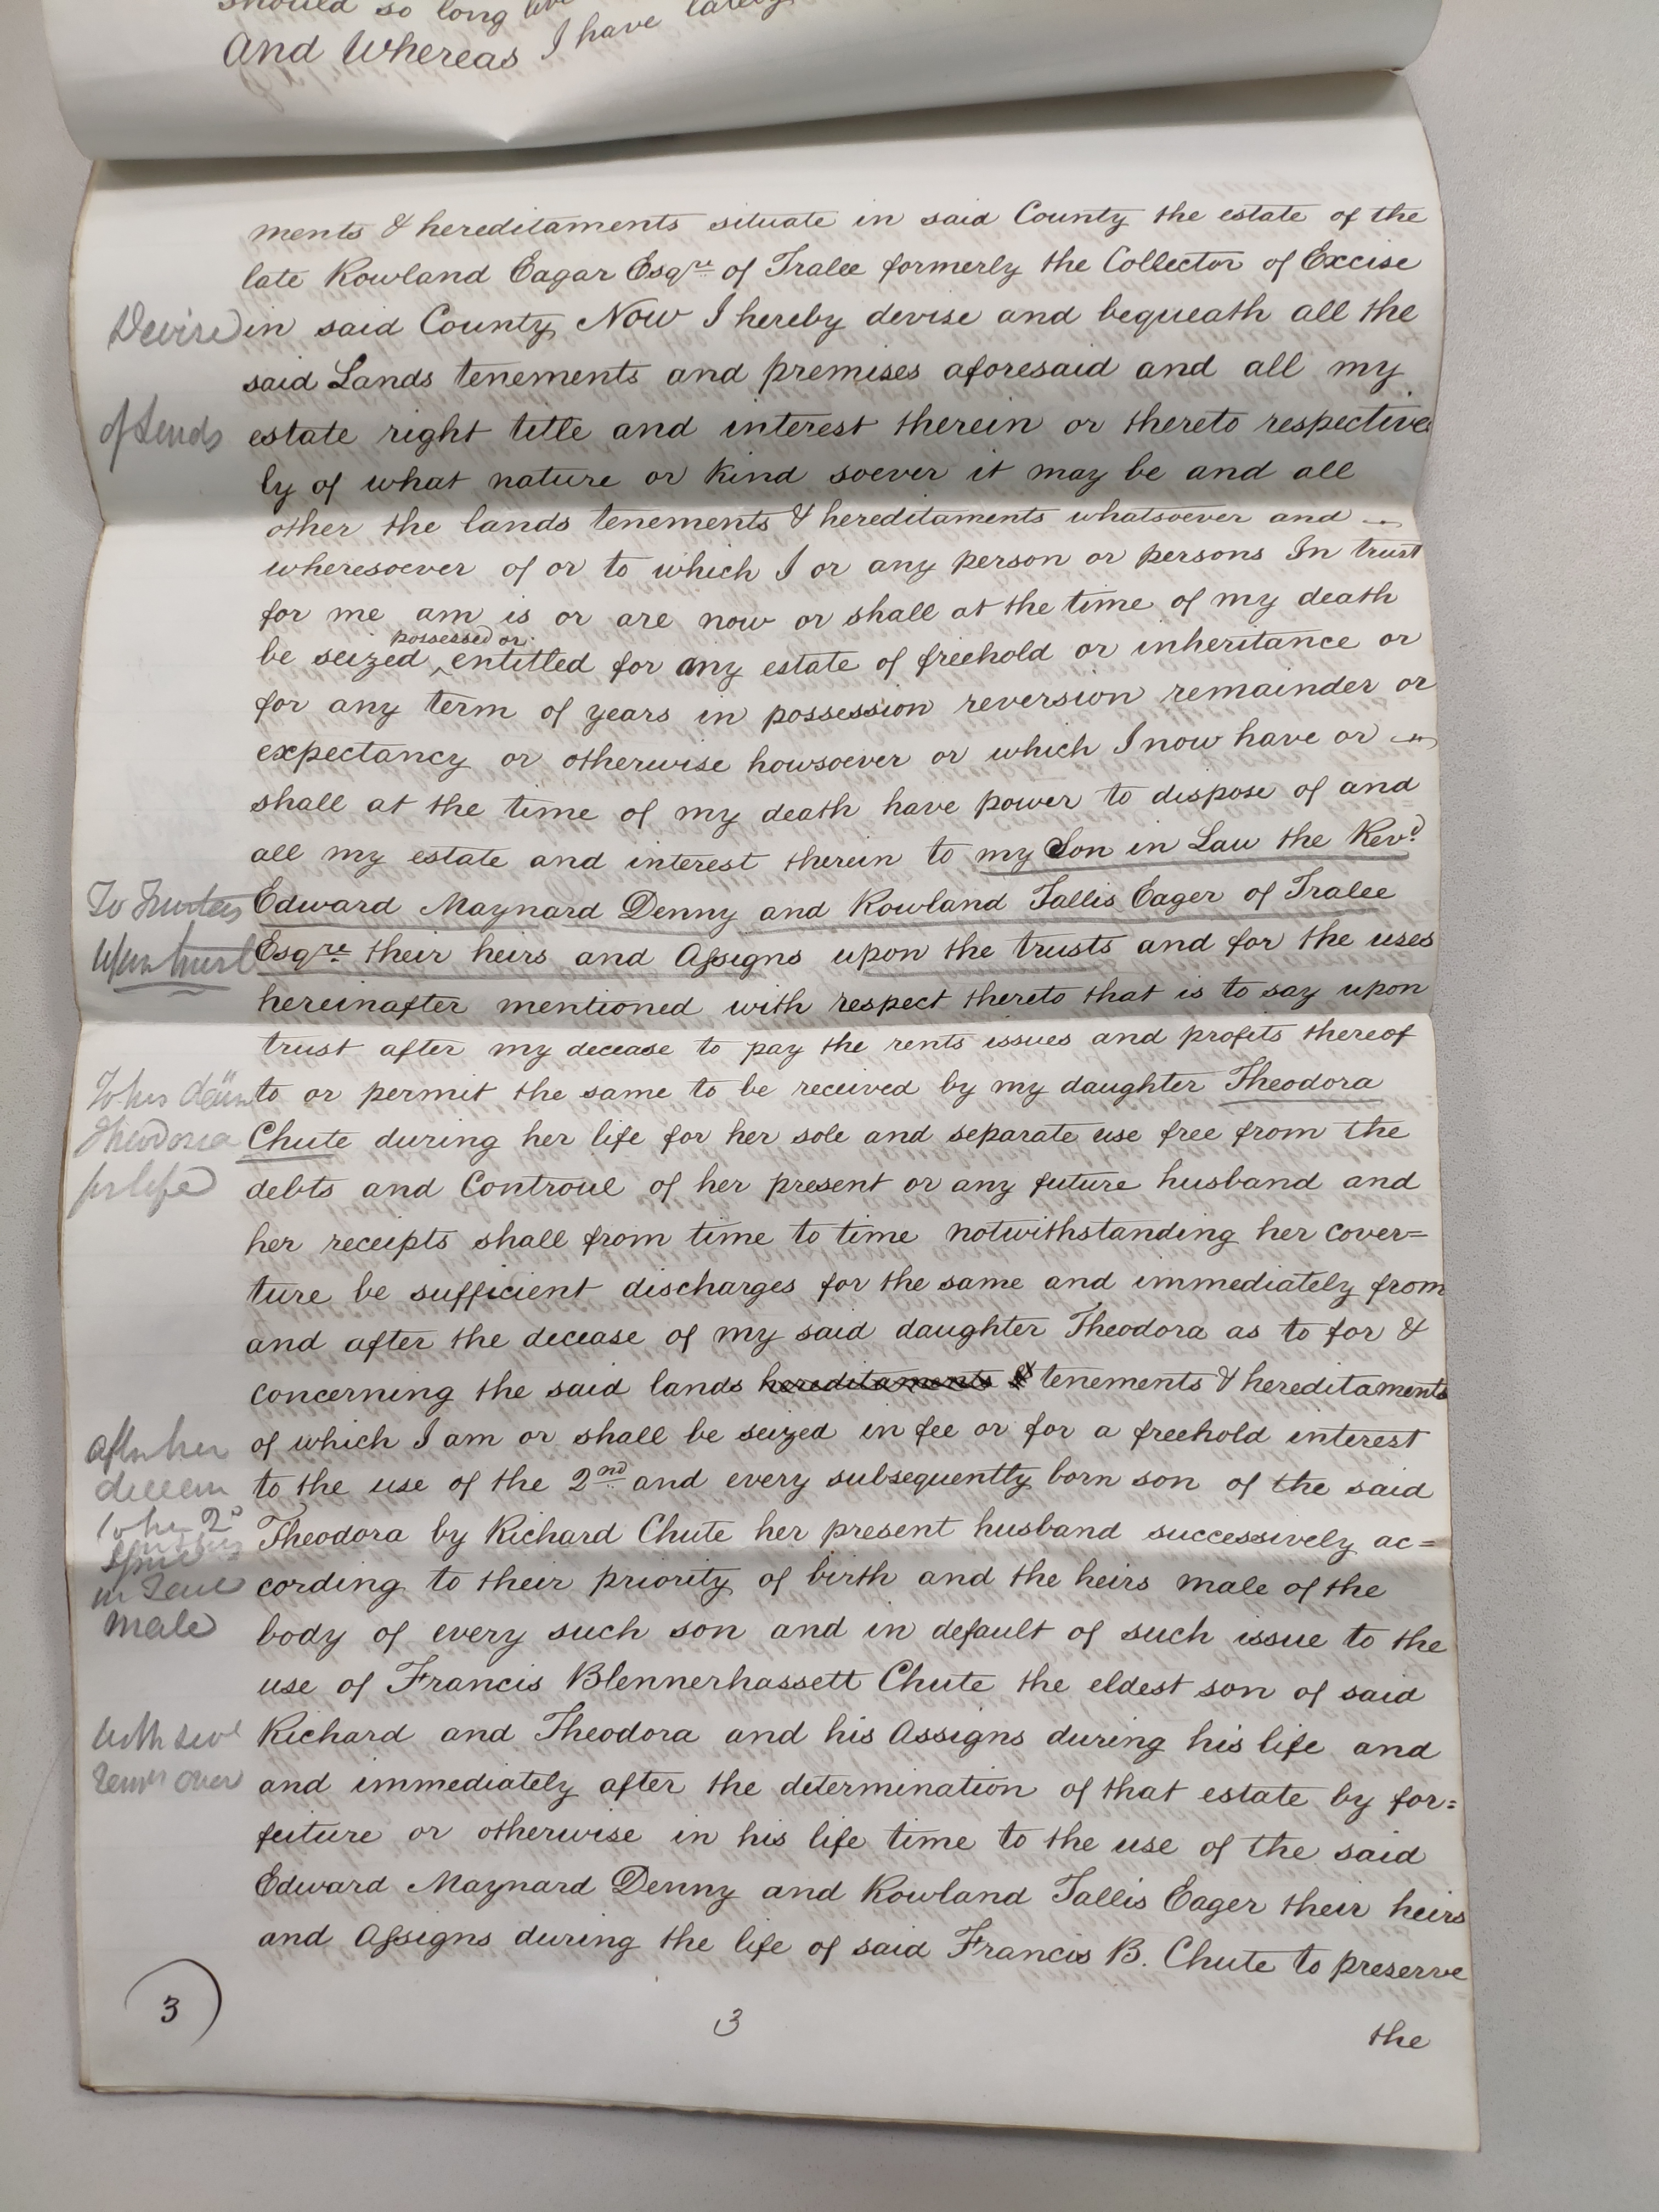 should so long live
And Whereas I have lately
ments & hereditaments situate in said County the estate of the
late Rowland Eagar Esqre of Tralee formerly the Collector of Excise
Devise in said County Now I hereby devise and bequeath all the
said Lands tenements and premises aforesaid and all my
of Lands estate right title and interest therein or thereto respective
ly of what nature or kind soever it may be and all
other the lands tenements & hereditaments whatsoever and
wheresoever of or to which I or any person or persons In trust
for me am is or are now or shall at the time of my death
possessed or
be seized ^ entitled for any estate of freehold or inheritance or
for any term of years in possession reversion remainder or
expectancy or otherwise howsoever or which I now have or
shall at the time of my death have power to dispose of and
all my estate and interest therein to my Son in Law the Revd.
To Trustees Edward Maynard Denny and Rowland Tallis Eager of Tralee
Upon trust Esqre. their heirs and Assigns upon the trusts and for the uses
hereinafter mentioned with respect thereto that is to say upon
trust after my decease to pay the rents issues and profits thereof
To his to or permit the same to be received by my daughter Theodora
Theodora Chute during her life for her sole and separate use free from the
for life debts and Controul of her present or any future husband and
her receipts shall from time to time notwithstanding her cover=
ture be sufficient discharges for the same and immediately from
and after the decease of my said daughter Theodora as to for &
concerning the said lands hereditaments & tenements & hereditaments
after her of which I am or shall be seized in fee or for a freehold interest
to the use of the 2nd and every subsequently born son of the said
to her 2d Theodora by Richard Chute her present husband successively ac=
in Tail cording to their priority of birth and the heirs male of the
male body of every such son and in default of such issue to the
use of Francis Blennerhassett Chute the eldest son of said
Richard and Theodora and his Assigns during his life and
over and immediately after the determination of that estate by for=
feiture or otherwise in his life time to the use of the said
Edward Maynard Denny and Rowland Tallis Eager their heirs
and Assigns during the life of said Francis B. Chute to preserve
3 3
the